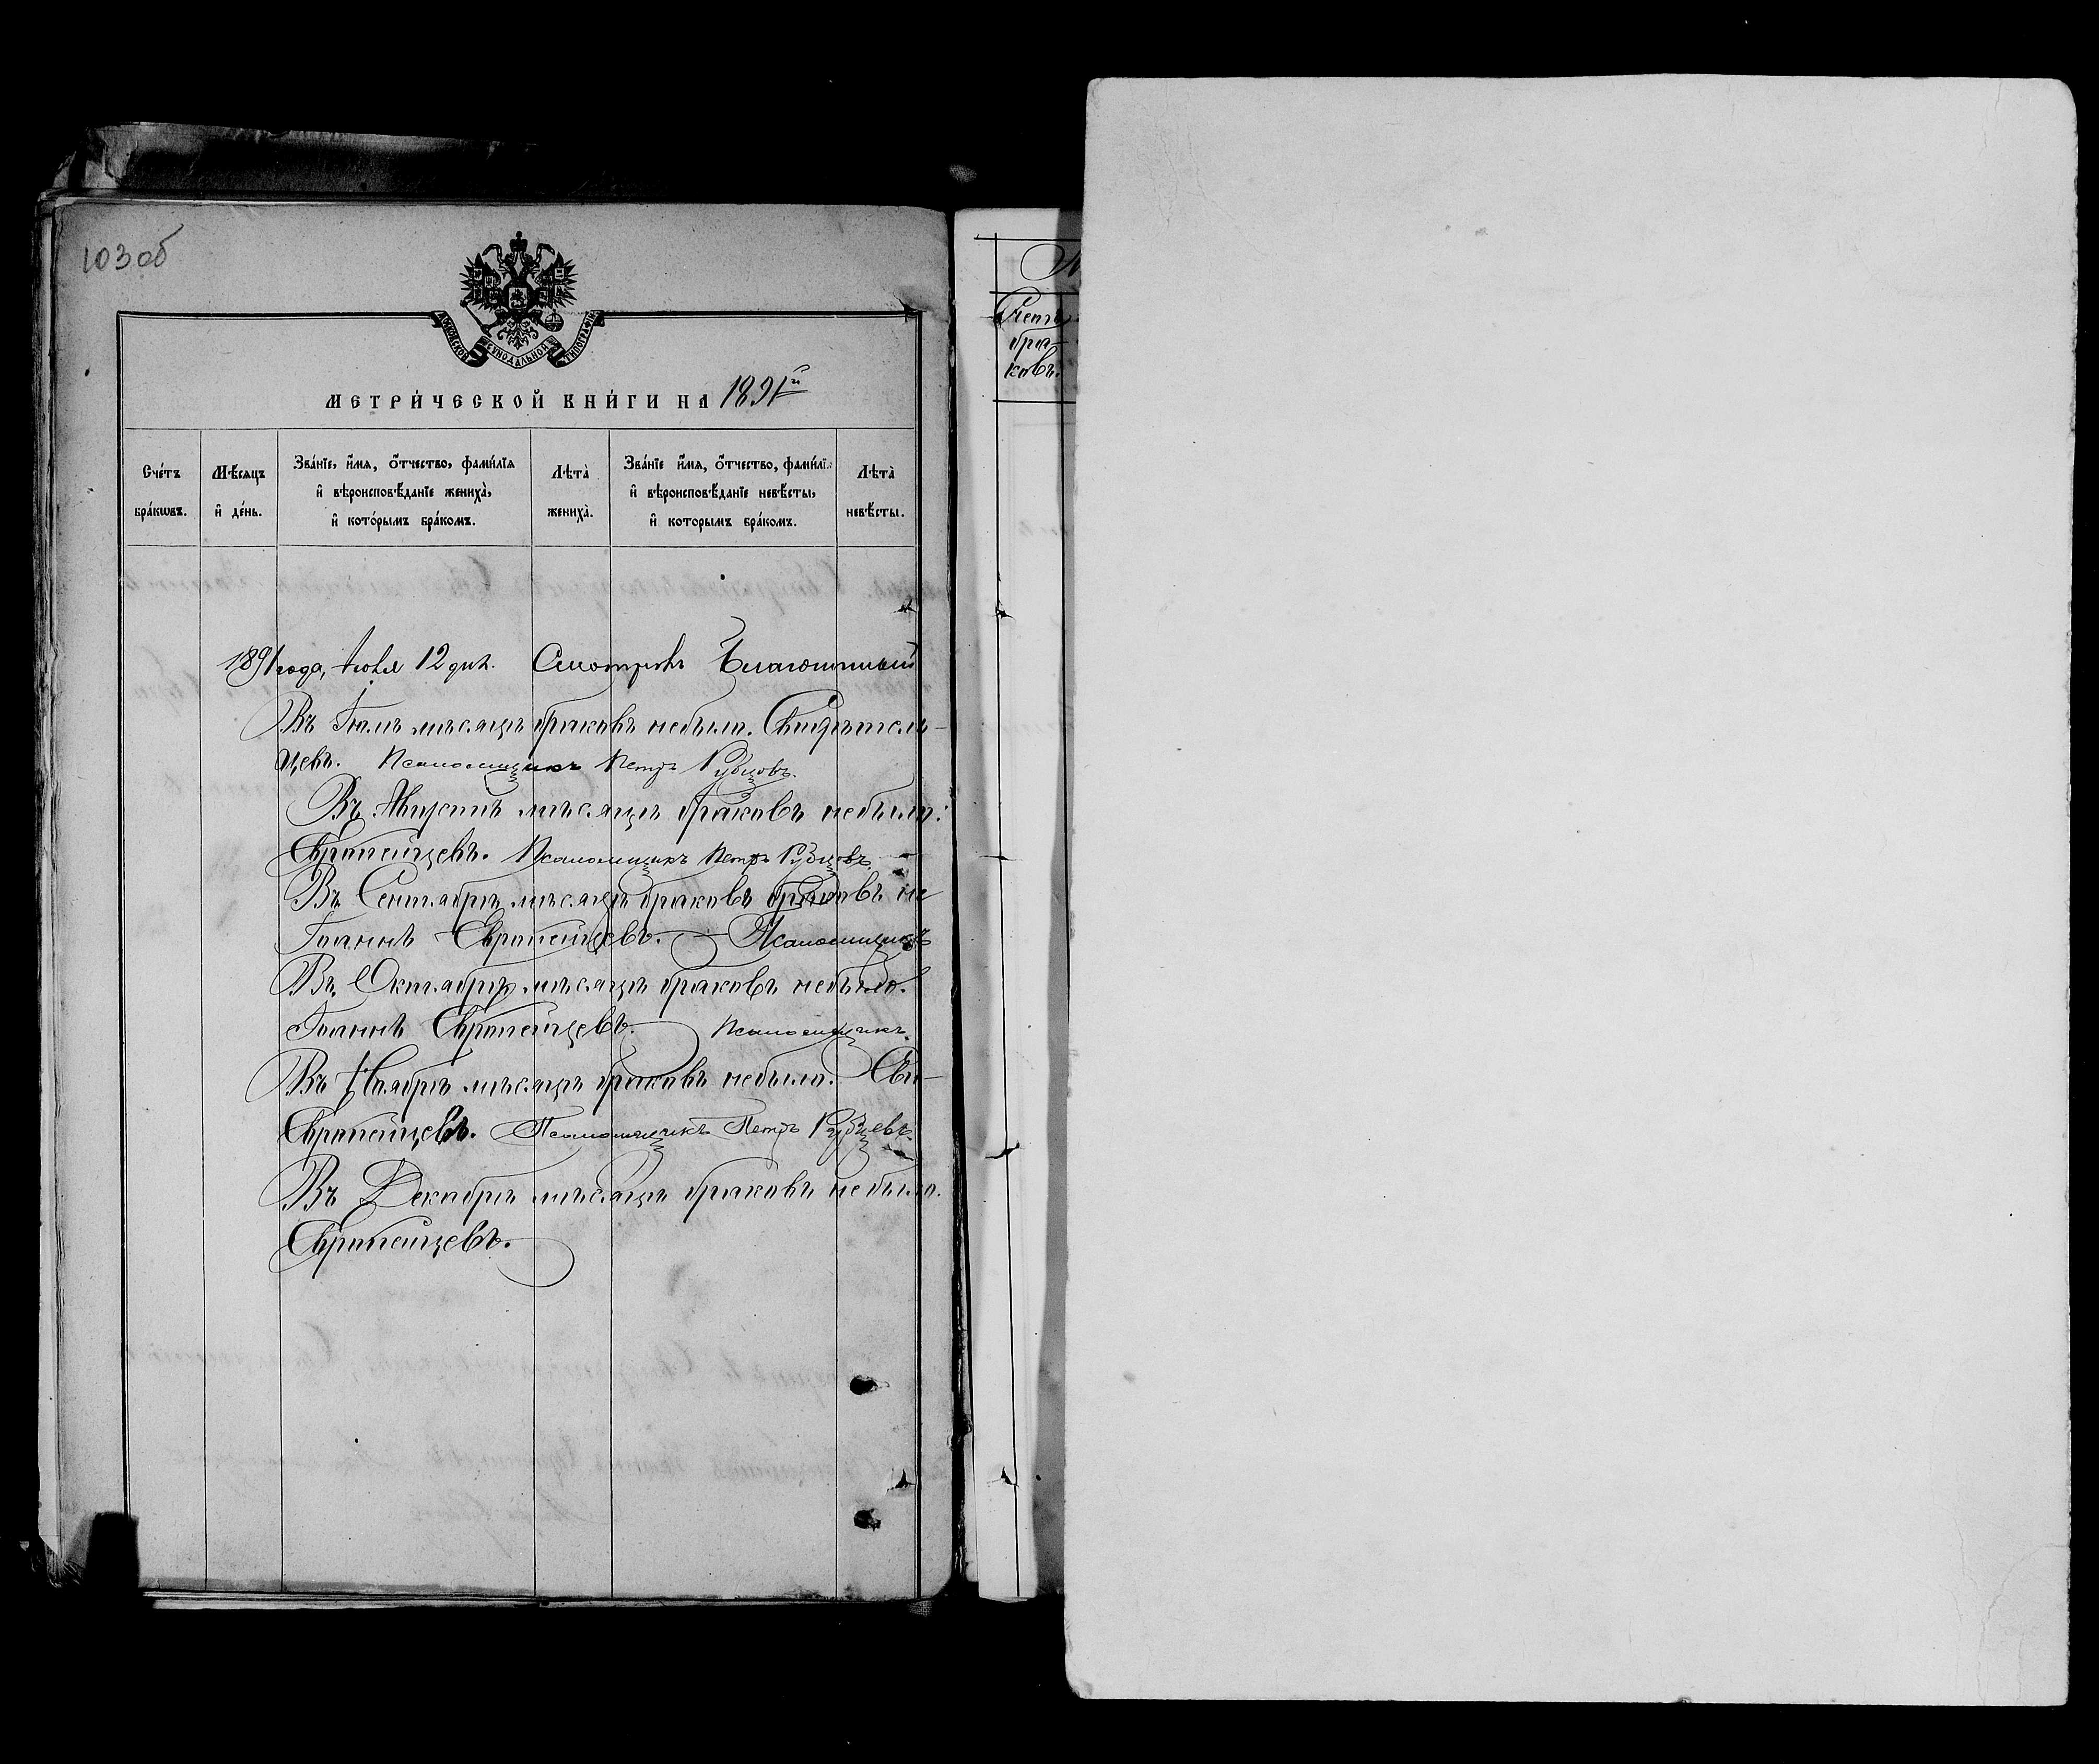 103 об
МОСКОВСКОЙ СУНОДАЛЬНОЙ ТИПОГРАФІИ
МЕТРИ́ЧЕСКОЙ КНИ́ГИ НА 1891й
Сче́тъ бра́кѡвъ.
Мѣ́сяцъ и де́нь.
Зва́нїе, и́мя, о́тчество, фами́лїя и вѣроисповѣ́данїе жениха̀, и кото́рымъ бра́комъ.
Лѣта̀ жениха̀.
Зва́нїе и́мя, о́тчество, фами́лї и вѣроисповѣ́данїе невѣ́сты, и которымъ бра́комъ.
Лѣта̀ невѣ́сты.
1891 года, Іюля 12 дня. Смотрѣлъ Благочинный
Въ Іюлѣ мѣсяцѣ браковъ небыло. Свидѣтель-
цевъ. Псаломщикъ Петръ Рубцовъ.
Въ Августѣ мѣсяцѣ браковъ небыло:
Европейцевъ. Псаломщикъ Петръ Рубцовъ
Въ Сентябрѣ мѣсяцѣ браковъ браковъ не
Іоаннъ Европейцевъ. — Псаломщикъ
Въ Октябрѣ мѣсяцѣ браковъ небыло.
Іоаннъ Европейцевъ. Псаломщикъ
Въ Ноябрѣ мѣсяцѣ браковъ небыло. Сви-
Европейцевъ. Псаломщикъ Петръ Рубцевъ.
Въ Декабрѣ мѣсяцѣ браковъ небыло.
Европейцевъ.
Счетъ
бра-
ковъ.